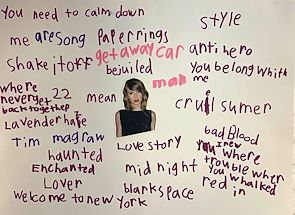 You need to calm down
style
me are song
paper rings
getaway car
anti hero
shake it off
bejuiled
You belong Whith me
man
where never get back together
22
mean
cruil sumer
Lavender haze
Tim magraw
Love story
bad Blood
haunted
You knew where trouble when You whalked in
Enchanted
mid night
red
Lover
blankspace
welcome to new York